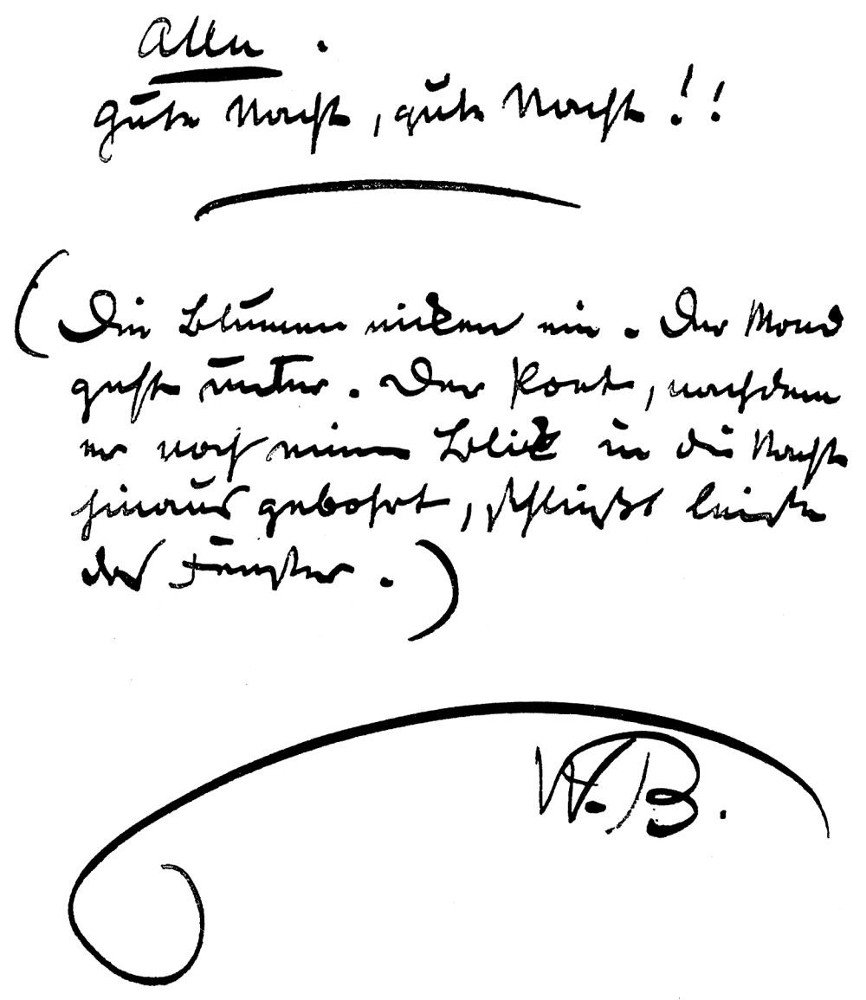 Alle.
gute Nacht, gute Nacht!!
(Die Blumen nicken ein. Der Mond
geht unter. Der Poet, nachdem
er noch einen Blick in die Nacht
hinaus gebohrt, schließt leise
das Fenster.)
W. B.